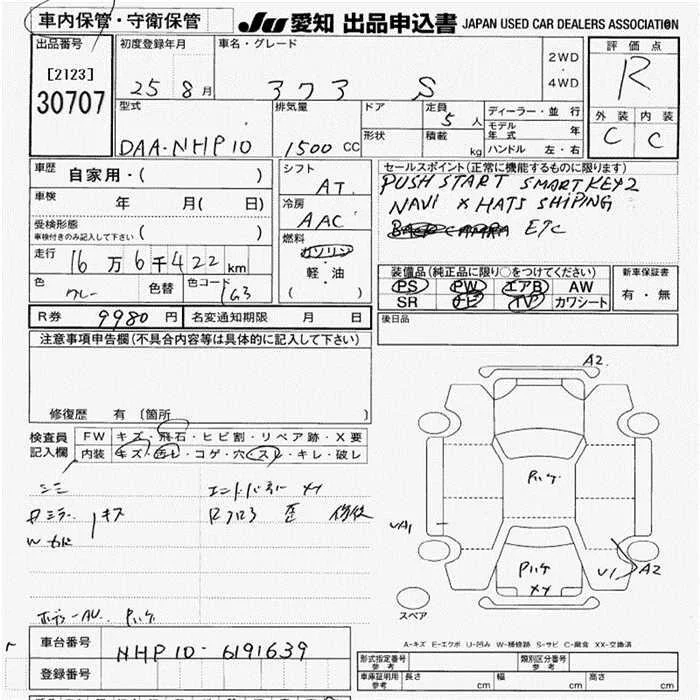 車内保管・守衛保管 JU 愛知 出品申込書 JAPAN USED CAR DEALERS ASSOCIATION
出品番号 初度登録年月 車名・グレード 評価点
[2123] 25 8月 アクア S 2WD・4WD R
30707 型式 排気量 ドア 定員 5人 ディーラー・並行 外装 内装
モデル年式 年
DAA-NHP10 1500 CC 形状 積載 kg ハンドル 左・右 C C
車歴 自家用・( ) シフト AT セールスポイント(正常に機能するものに限ります)
PUSH START SMARTKEY2
車検 年 月( 日) 冷房 AAC NAVI X HATS SHIPING
受検形態 ETC
車検付きのみ記入して下さい ( ) 燃料 ガソリン
走行 16万6千422km 軽・油 装備品(純正品に限り○をつけてください) 新車保証書
色 グレー 色替 色コード 1G3 ( ) PS PW エアB AW 有・無
SR ナビ TV カワシート
R券 9980円 名変通知期限 月 日 後日品
注意事項申告欄(不具合内容等は具体的に記入して下さい)
A2
修復歴 有 〔箇所 〕
検査員記入欄 FW キズ・飛石・ヒビ割・リペア跡・X要
内装 キズ・汚レ・コゲ・穴・スレ・キレ・破レ
シミ
キズ
A1
U1 A2
XX
スペア
A-キズ E-エクボ U-凹み W-補修跡 S-サビ C-腐食 XX-交換済
車台番号 NHP10-6191639
形式指定番号 参考 類別区分番号 参考
登録番号 車庫証明用 参考 長さ cm 幅 cm 高さ cm